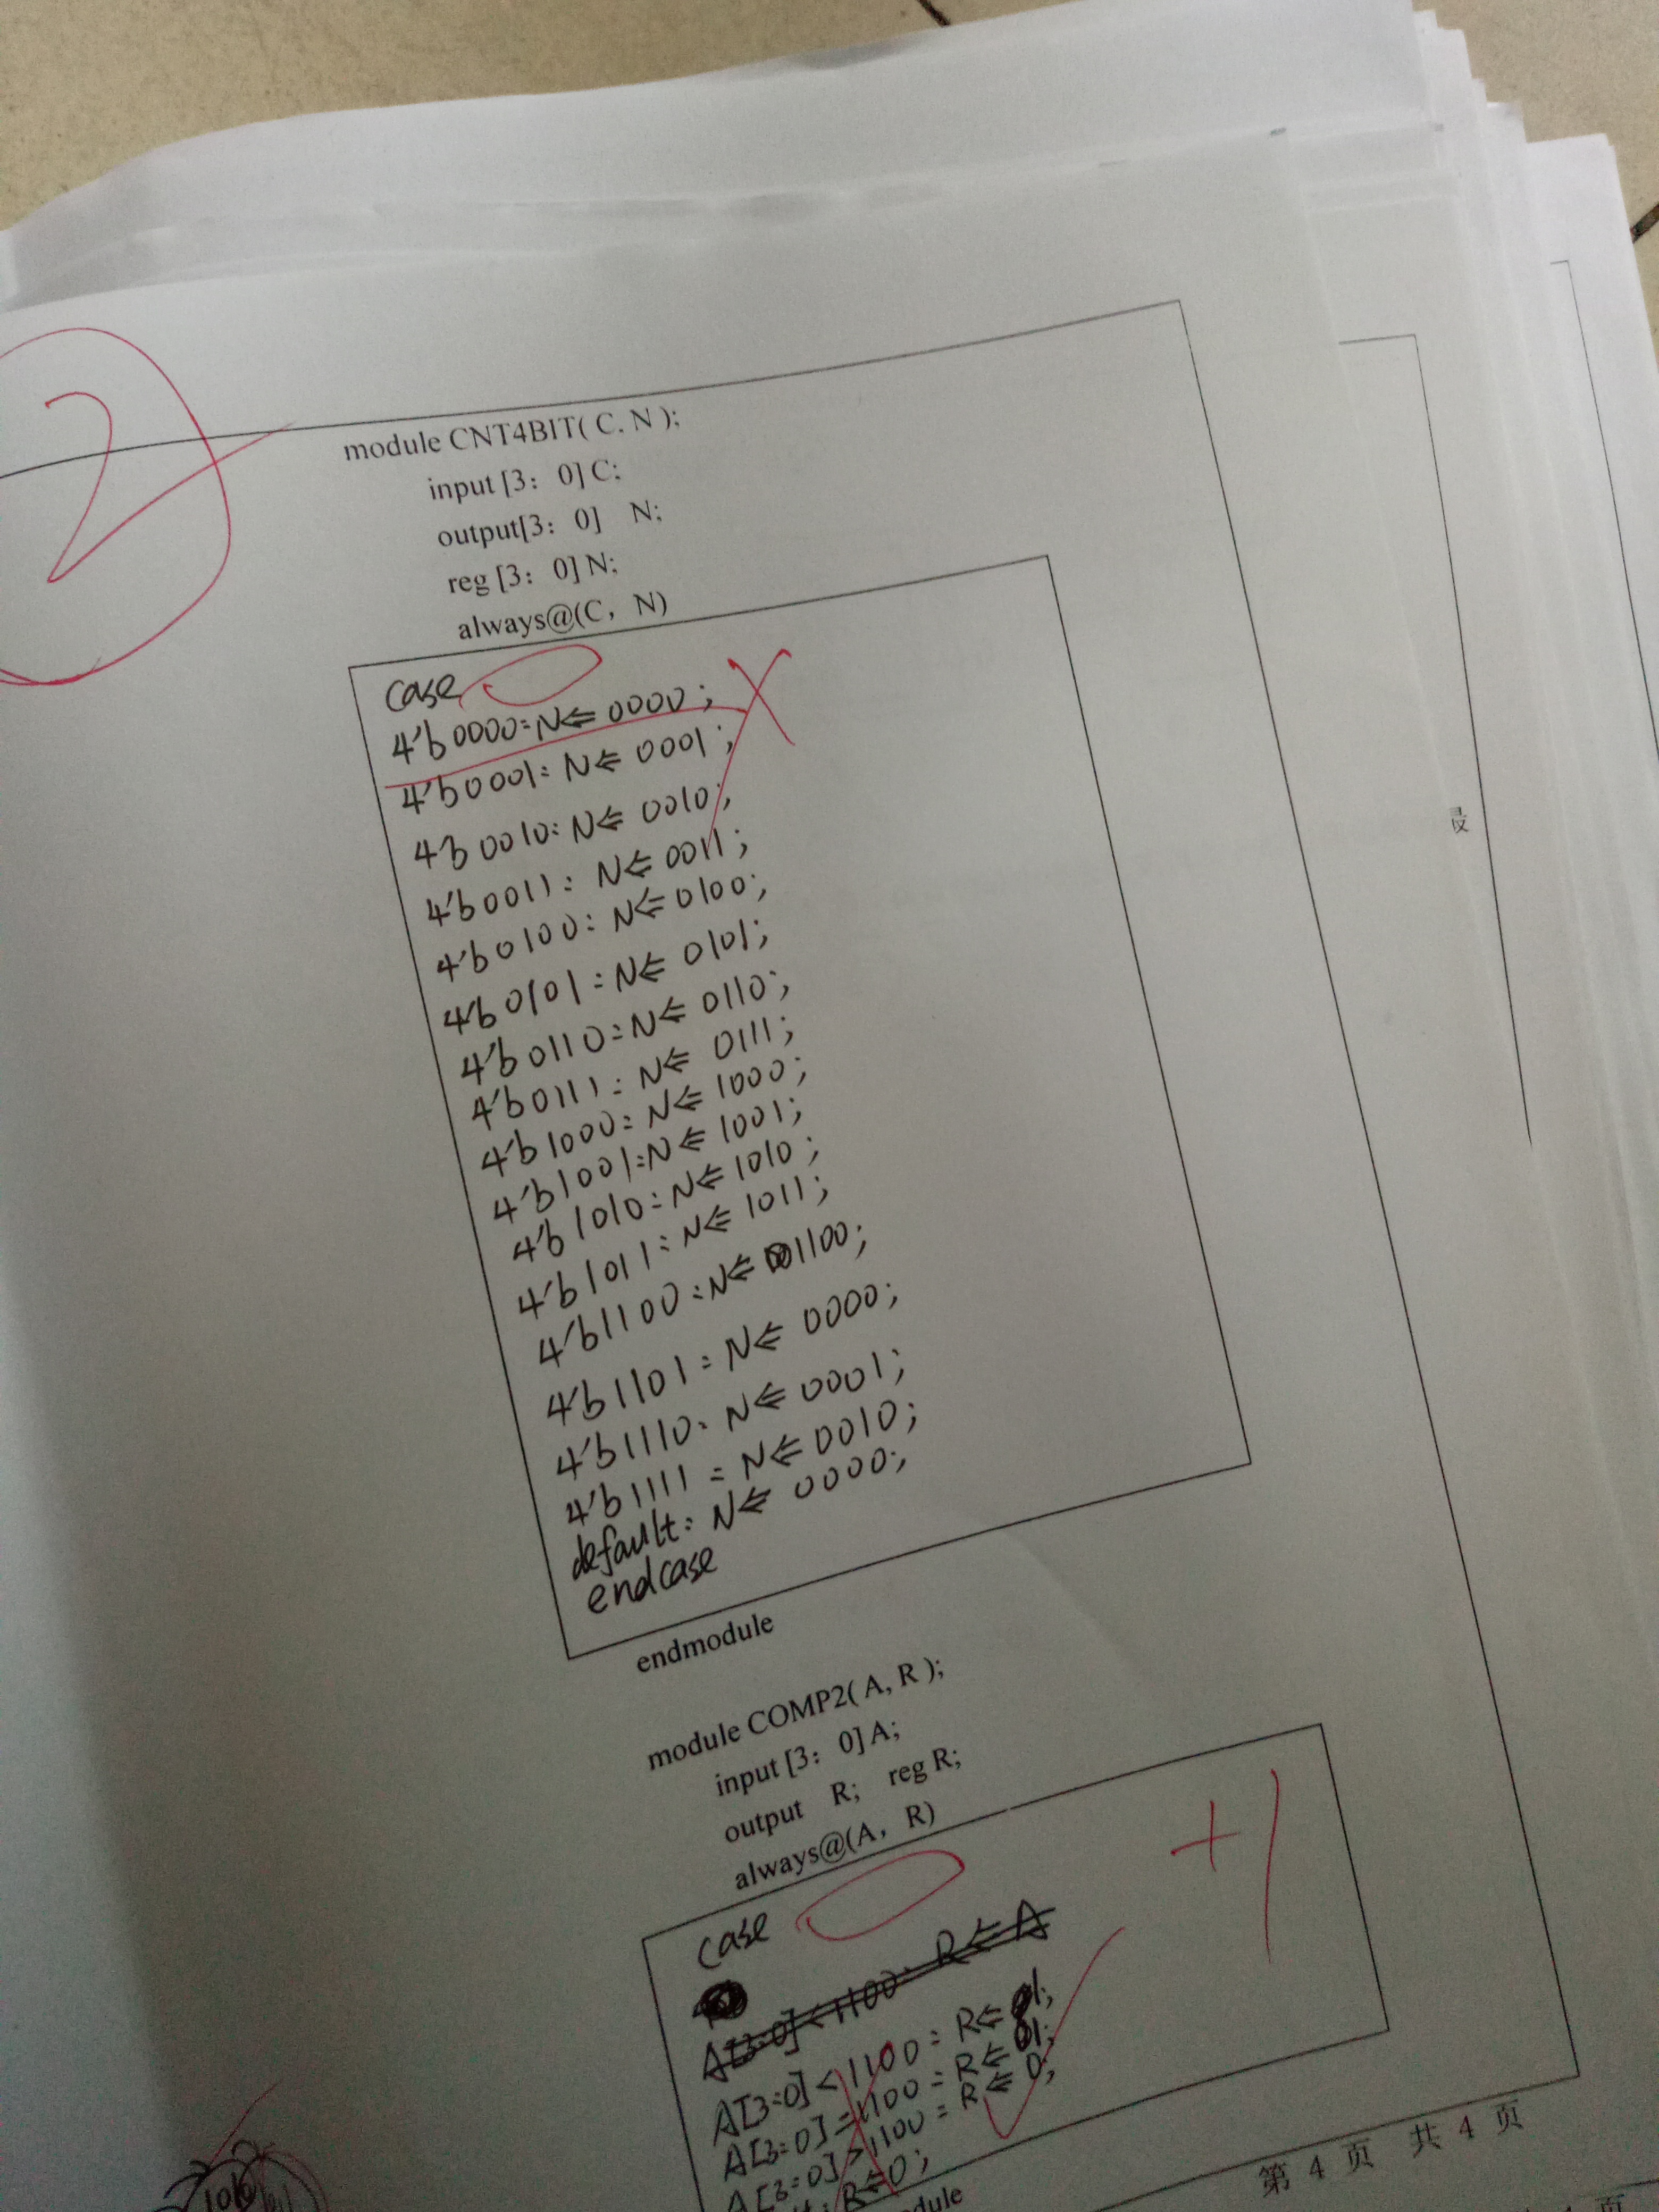 2
module CNT4BIT( C. N );
input [3: 0] C;
output[3: 0] N;
reg [3: 0] N;
always@(C, N)
case
4'b0000:N<=0000;
4'b0001:N<=0001;
4'b0010:N<=0010;
4'b0011:N<=0011;
4'b0100:N<=0100;
4'b0101:N<=0101;
4'b0110:N<=0110;
4'b0111:N<=0111;
4'b1000:N<=1000;
4'b1001:N<=1001;
4'b1010:N<=1010;
4'b1011:N<=1011;
4'b1100:N<=1100;
4'b1101:N<=0000;
4'b1110:N<=0001;
4'b1111:N<=0010;
default:N<=0000;
endcase
endmodule
module COMP2( A, R );
input [3: 0] A;
output R; reg R;
always@(A, R)
+1
case
A[3:0]<1100:R<=A
A[3:0]<1100:R<=1;
A[3:0]=1100:R<=1;
A[3:0]>1100:R<=0;
R<=0;
第 4 页 共 4 页